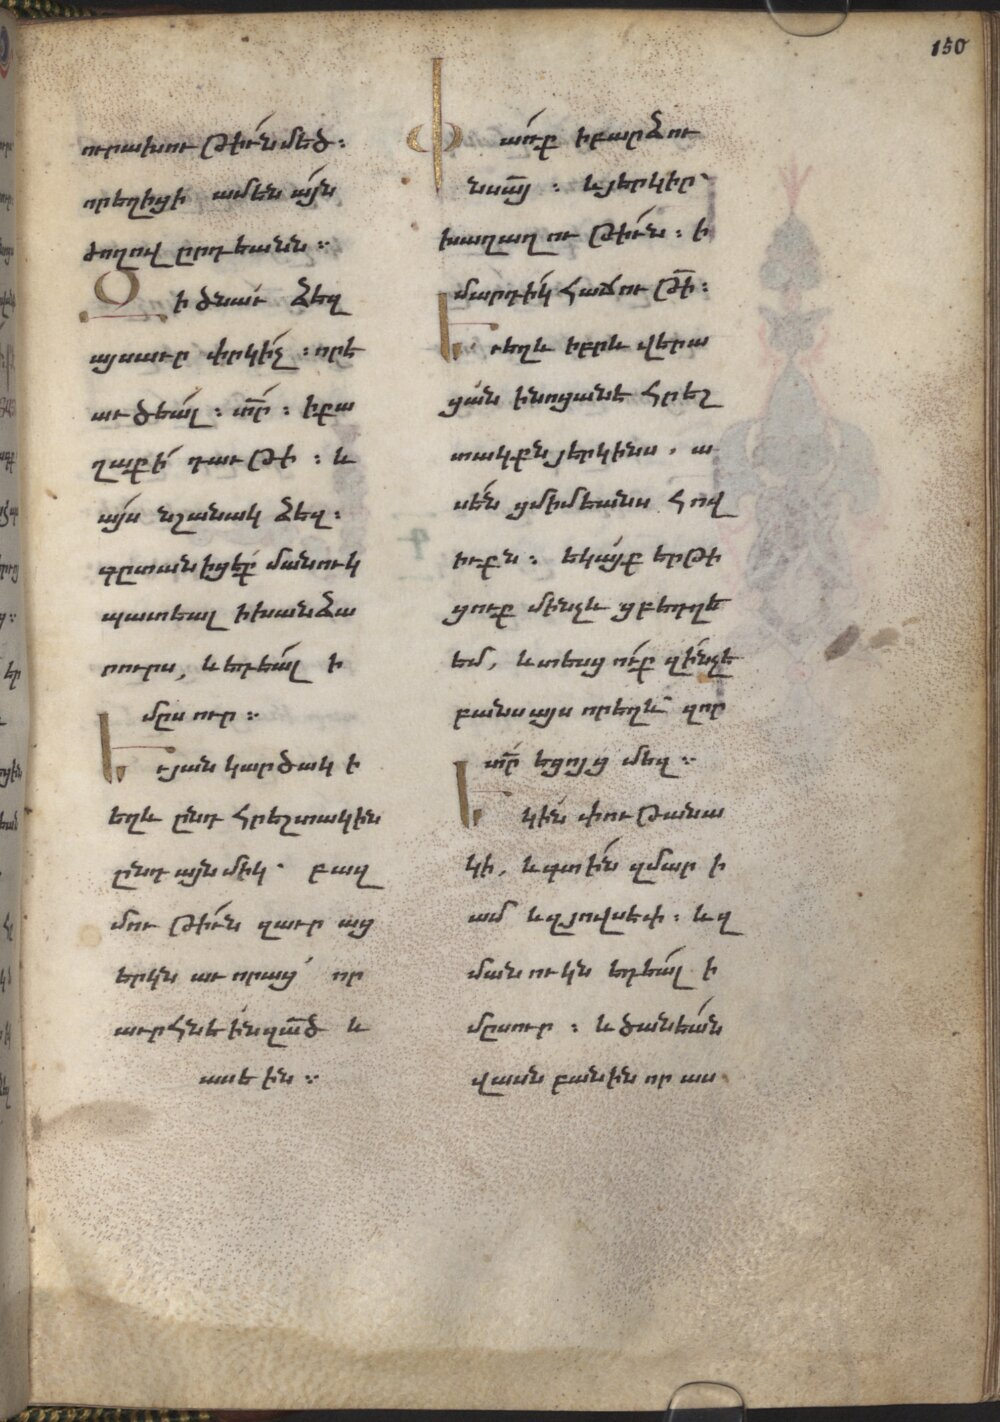 150
ուրախութիւն մեծ։
որ եղիցի ամենայն
ժողովըրդեանն։
Զի ծնաւ ձեզ
այսաւր փրկիչ։ որ է
աւծեալ։ տր։ ի քա
ղաքի դաւթի։ և
այս նշանակ ձեզ։
գըտանիցէք մանուկ
պատեալ ի խանձա
րուրս, և եդեալ ի
մըսուր։
Եւ յանկարծակի
եղև ընդ հրեշտակին
ընդ այնմիկ՝ բազ
մութիւն զաւրաց
երկնաւորաց՝ որ
աւրհնէին զած և
ասէին։
Փառք ի բարձու
նս այ։ և յերկիր՝
խաղաղութիւն։ ի
մարդիկ հաճութի։
Եւ եղև իբրև վերա
ցան ի նոցանէ հրեշ
տակքն յերկինս. ա
սեն ցմիմեանս հով
իւքն։ եկայք երթի
ցուք մինչև ցբեդղե
եմ, և տեսցուք զինչ է
բանս այս որ եղև՝ զոր
տր եցոյց մեզ։
Եկին փութանա
կի, և գտին զմարի
ամ և զյովսեփ։ և զ
մանուկն եդեալ ի
մըսուր։ և ծանեան
վասն բանին որ աս